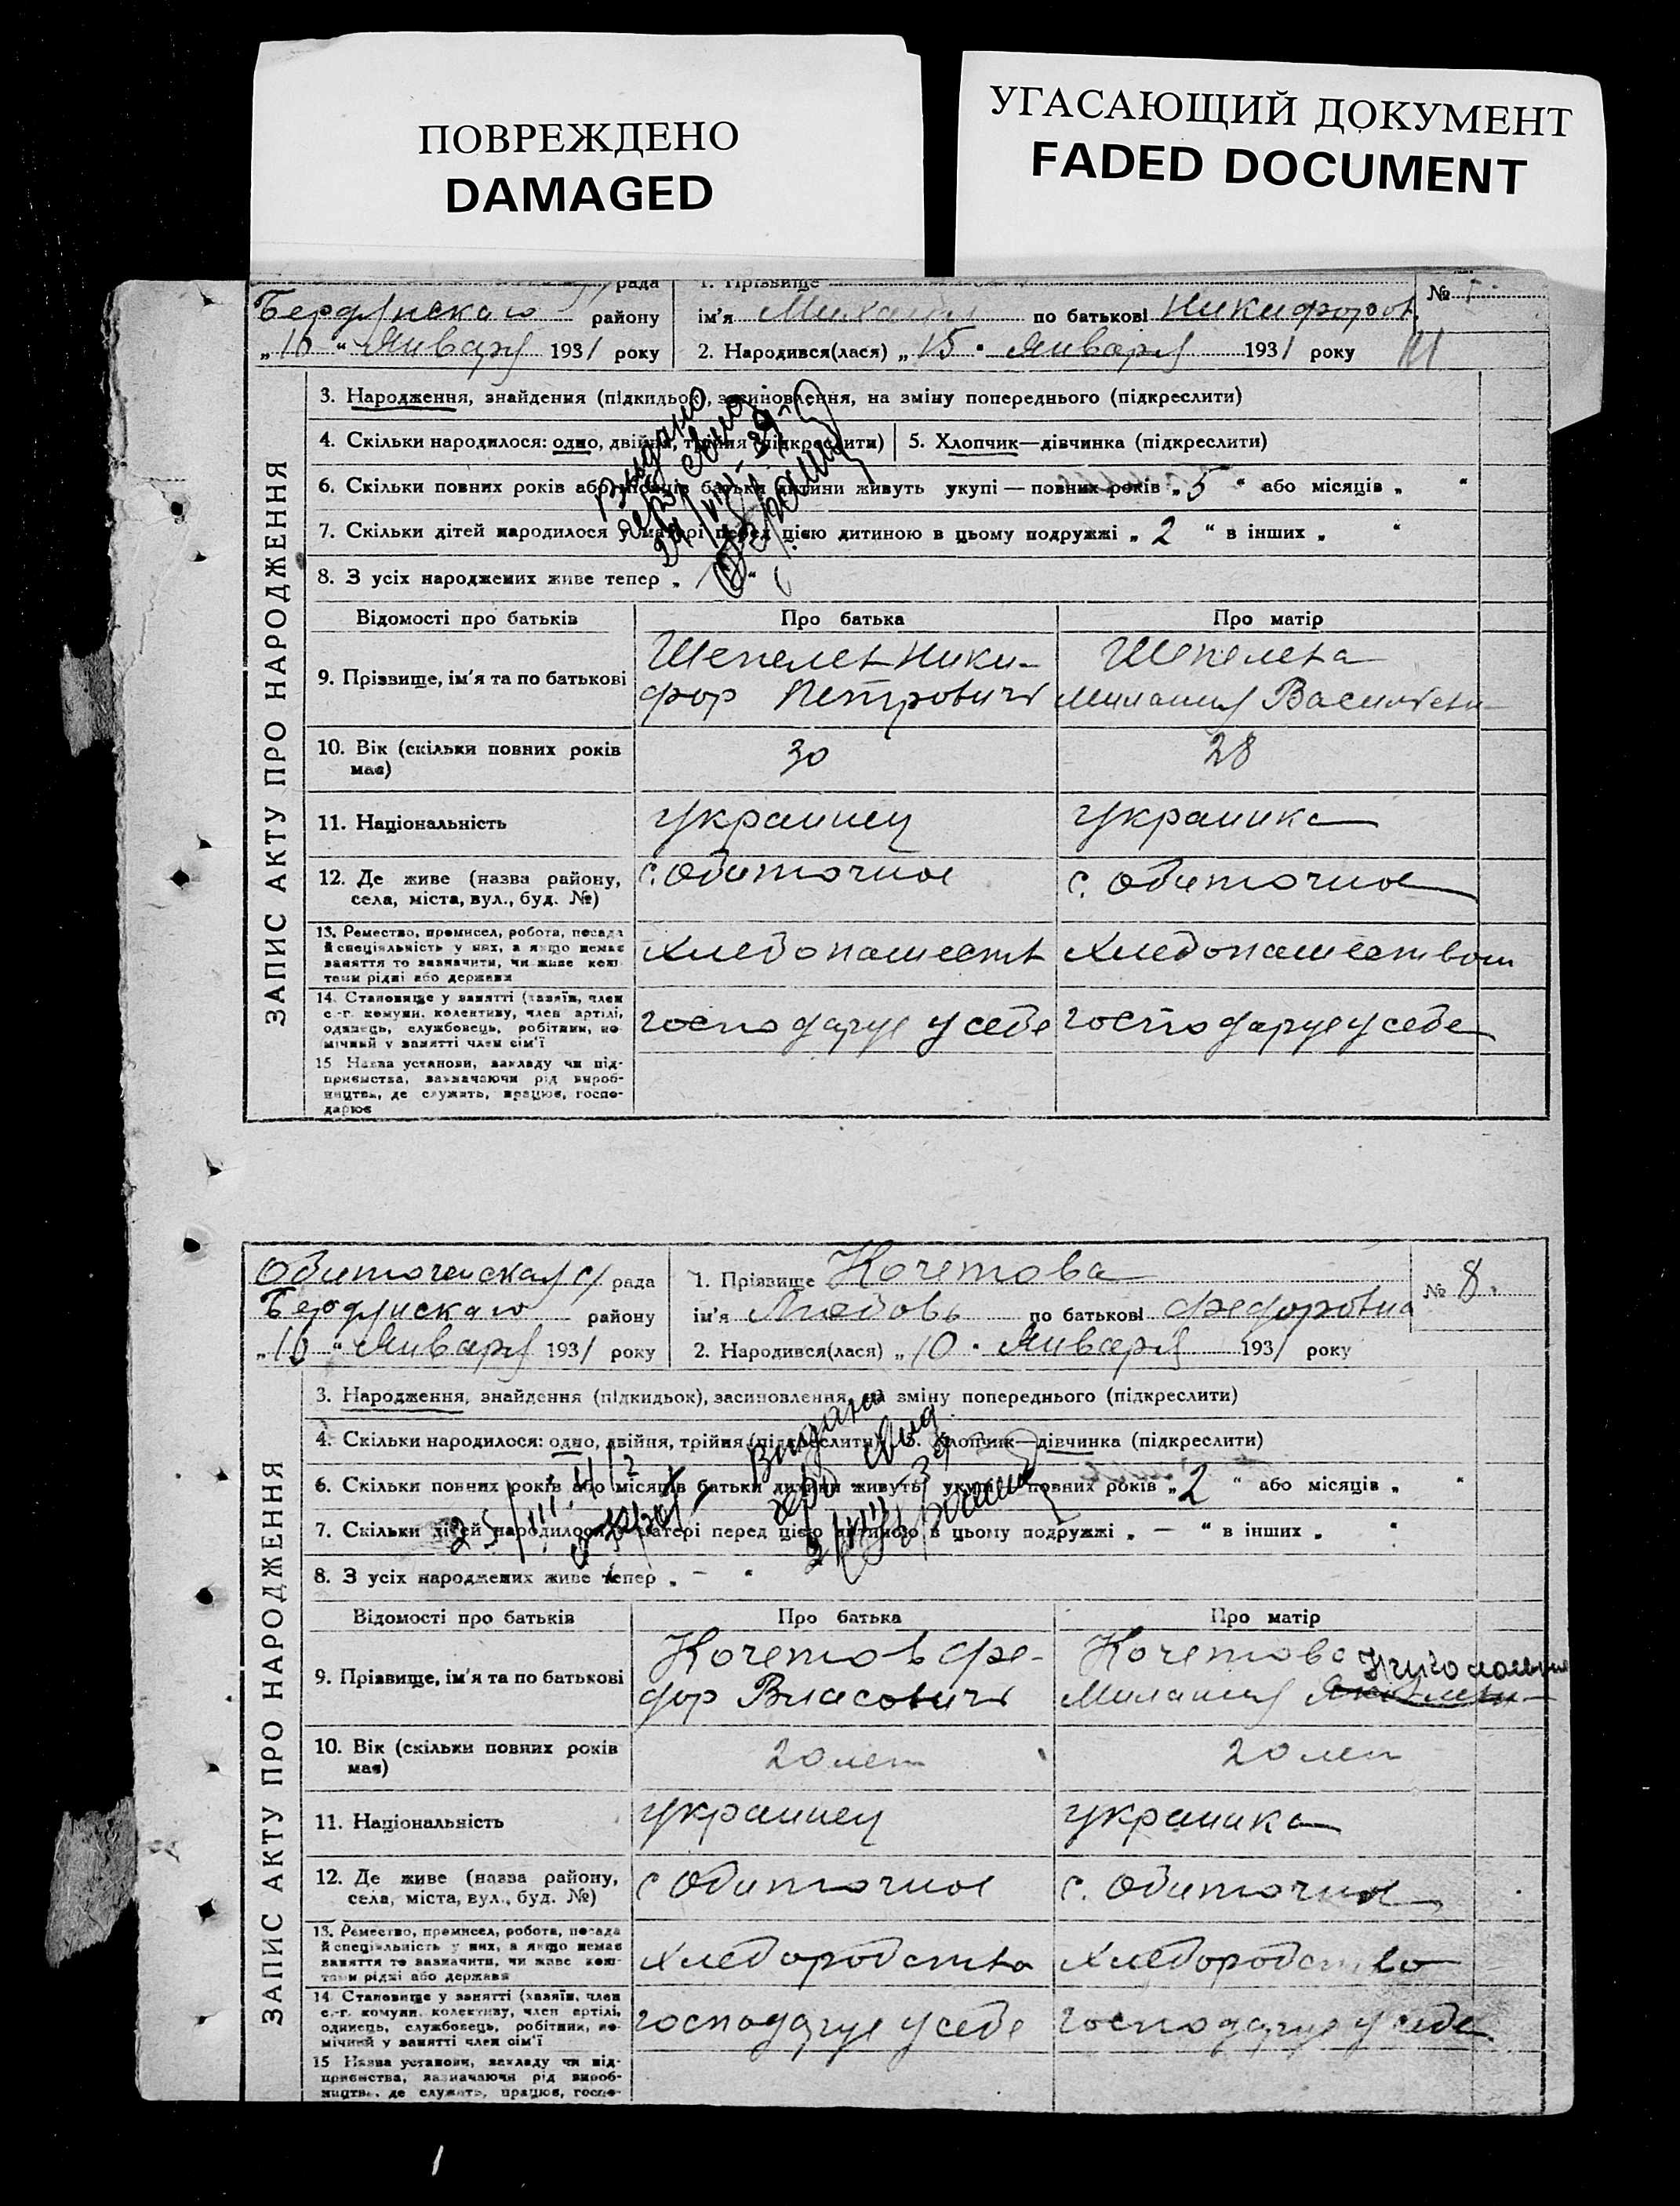 ПОВРЕЖДЕНО
DAMAGED
УГАСАЮЩИЙ ДОКУМЕНТ
FADED DOCUMENT
рада
1. Прізвище
№
Бердянскаго району
ім'я Михаил по батькові Никифоров.
„10“ Января 1931 року
2. Народився(лася) „15 Января 1931 року
ЗАПИС АКТУ ПРО НАРОДЖЕННЯ
3. Народження, знайдення (підкидьок), засиновлення, на зміну попереднього (підкреслити)
4. Скільки народилося: одно, двійня, трійня (підкреслити)
5. Хлопчик—дівчинка (підкреслити)
6. Скільки повних років або місяців батьки дитини живуть укупі — повних років „5“ або місяців „ “
7. Скільки дітей народилося у матері перед цією дитиною в цьому подружжі „2“ в інших „ “
8. З усіх народжених живе тепер „ “
Видано
Відомості про батьків
Про батька
Про матір
9. Прізвище, ім'я та по батькові
Шепелев Ники-
фор Петрович
Шепелева
Милания Васильевн
10. Вік (скільки повних років має)
30
28
11. Національність
украинец
украинка
12. Де живе (назва району, села, міста, вул., буд. №)
с. Обиточное
с. Обиточное
13. Ремество, промисел, робота, посада
й спеціяльність у них, а якщо немає
заняття то зазначити, чи живе кош-
тами рідні або держави
хлебопашеств
хлебопашеством
14. Становище у занятті (хазяїн, член
с.-г. комуни, колективу, член артілі,
одинець, службовець, робітник, по-
мічний у занятті член сім'ї
господарує у себе
господарує у себе
15 Назва установи, закладу чи під-
приємства, зазначаючи рід вироб-
ництва, де служить, працює, госпо-
дарює
Обиточенская с/ рада
1. Прізвище Кочетова
№ 8.
Бердянскаго району
ім'я Любовь по батькові Федоровна
„10“ Января 1931 року
2. Народився(лася) „10 Января 1931 року
ЗАПИС АКТУ ПРО НАРОДЖЕННЯ
3. Народження, знайдення (підкидьок), засиновлення, на зміну попереднього (підкреслити)
4. Скільки народилося: одно, двійня, трійня (підкреслити) 5. Хлопчик—дівчинка (підкреслити)
6. Скільки повних років або місяців батьки дитини живуть укупі — повних років „2“ або місяців „ “
7. Скільки дітей народилося у матері перед цією дитиною в цьому подружжі „—“ в інших „ “
8. З усіх народжених живе тепер „—“
Відомості про батьків
Про батька
Про матір
9. Прізвище, ім'я та по батькові
Кочетов Фе-
дор Власович
Кочетова
Милания
10. Вік (скільки повних років має)
20 лет
20 лет
11. Національність
украинец
украинка
12. Де живе (назва району, села, міста, вул., буд. №)
с Обиточное
с. Обиточное
13. Ремество, промисел, робота, посада
й спеціяльність у них, а якщо немає
заняття то зазначити, чи живе кош-
тами рідні або держави
хлеборобства
хлеборобство
14 Становище у занятті (хазяїн, член
с.-г. комуни, колективу, член артілі,
одинець, службовець, робітник, по-
мічний у занятті член сім'ї
господарує у себе
господарує у себе
15 Назва установи, закладу чи під-
приємства, зазначаючи рід вироб-
ництва, де служить, працює, госпо-